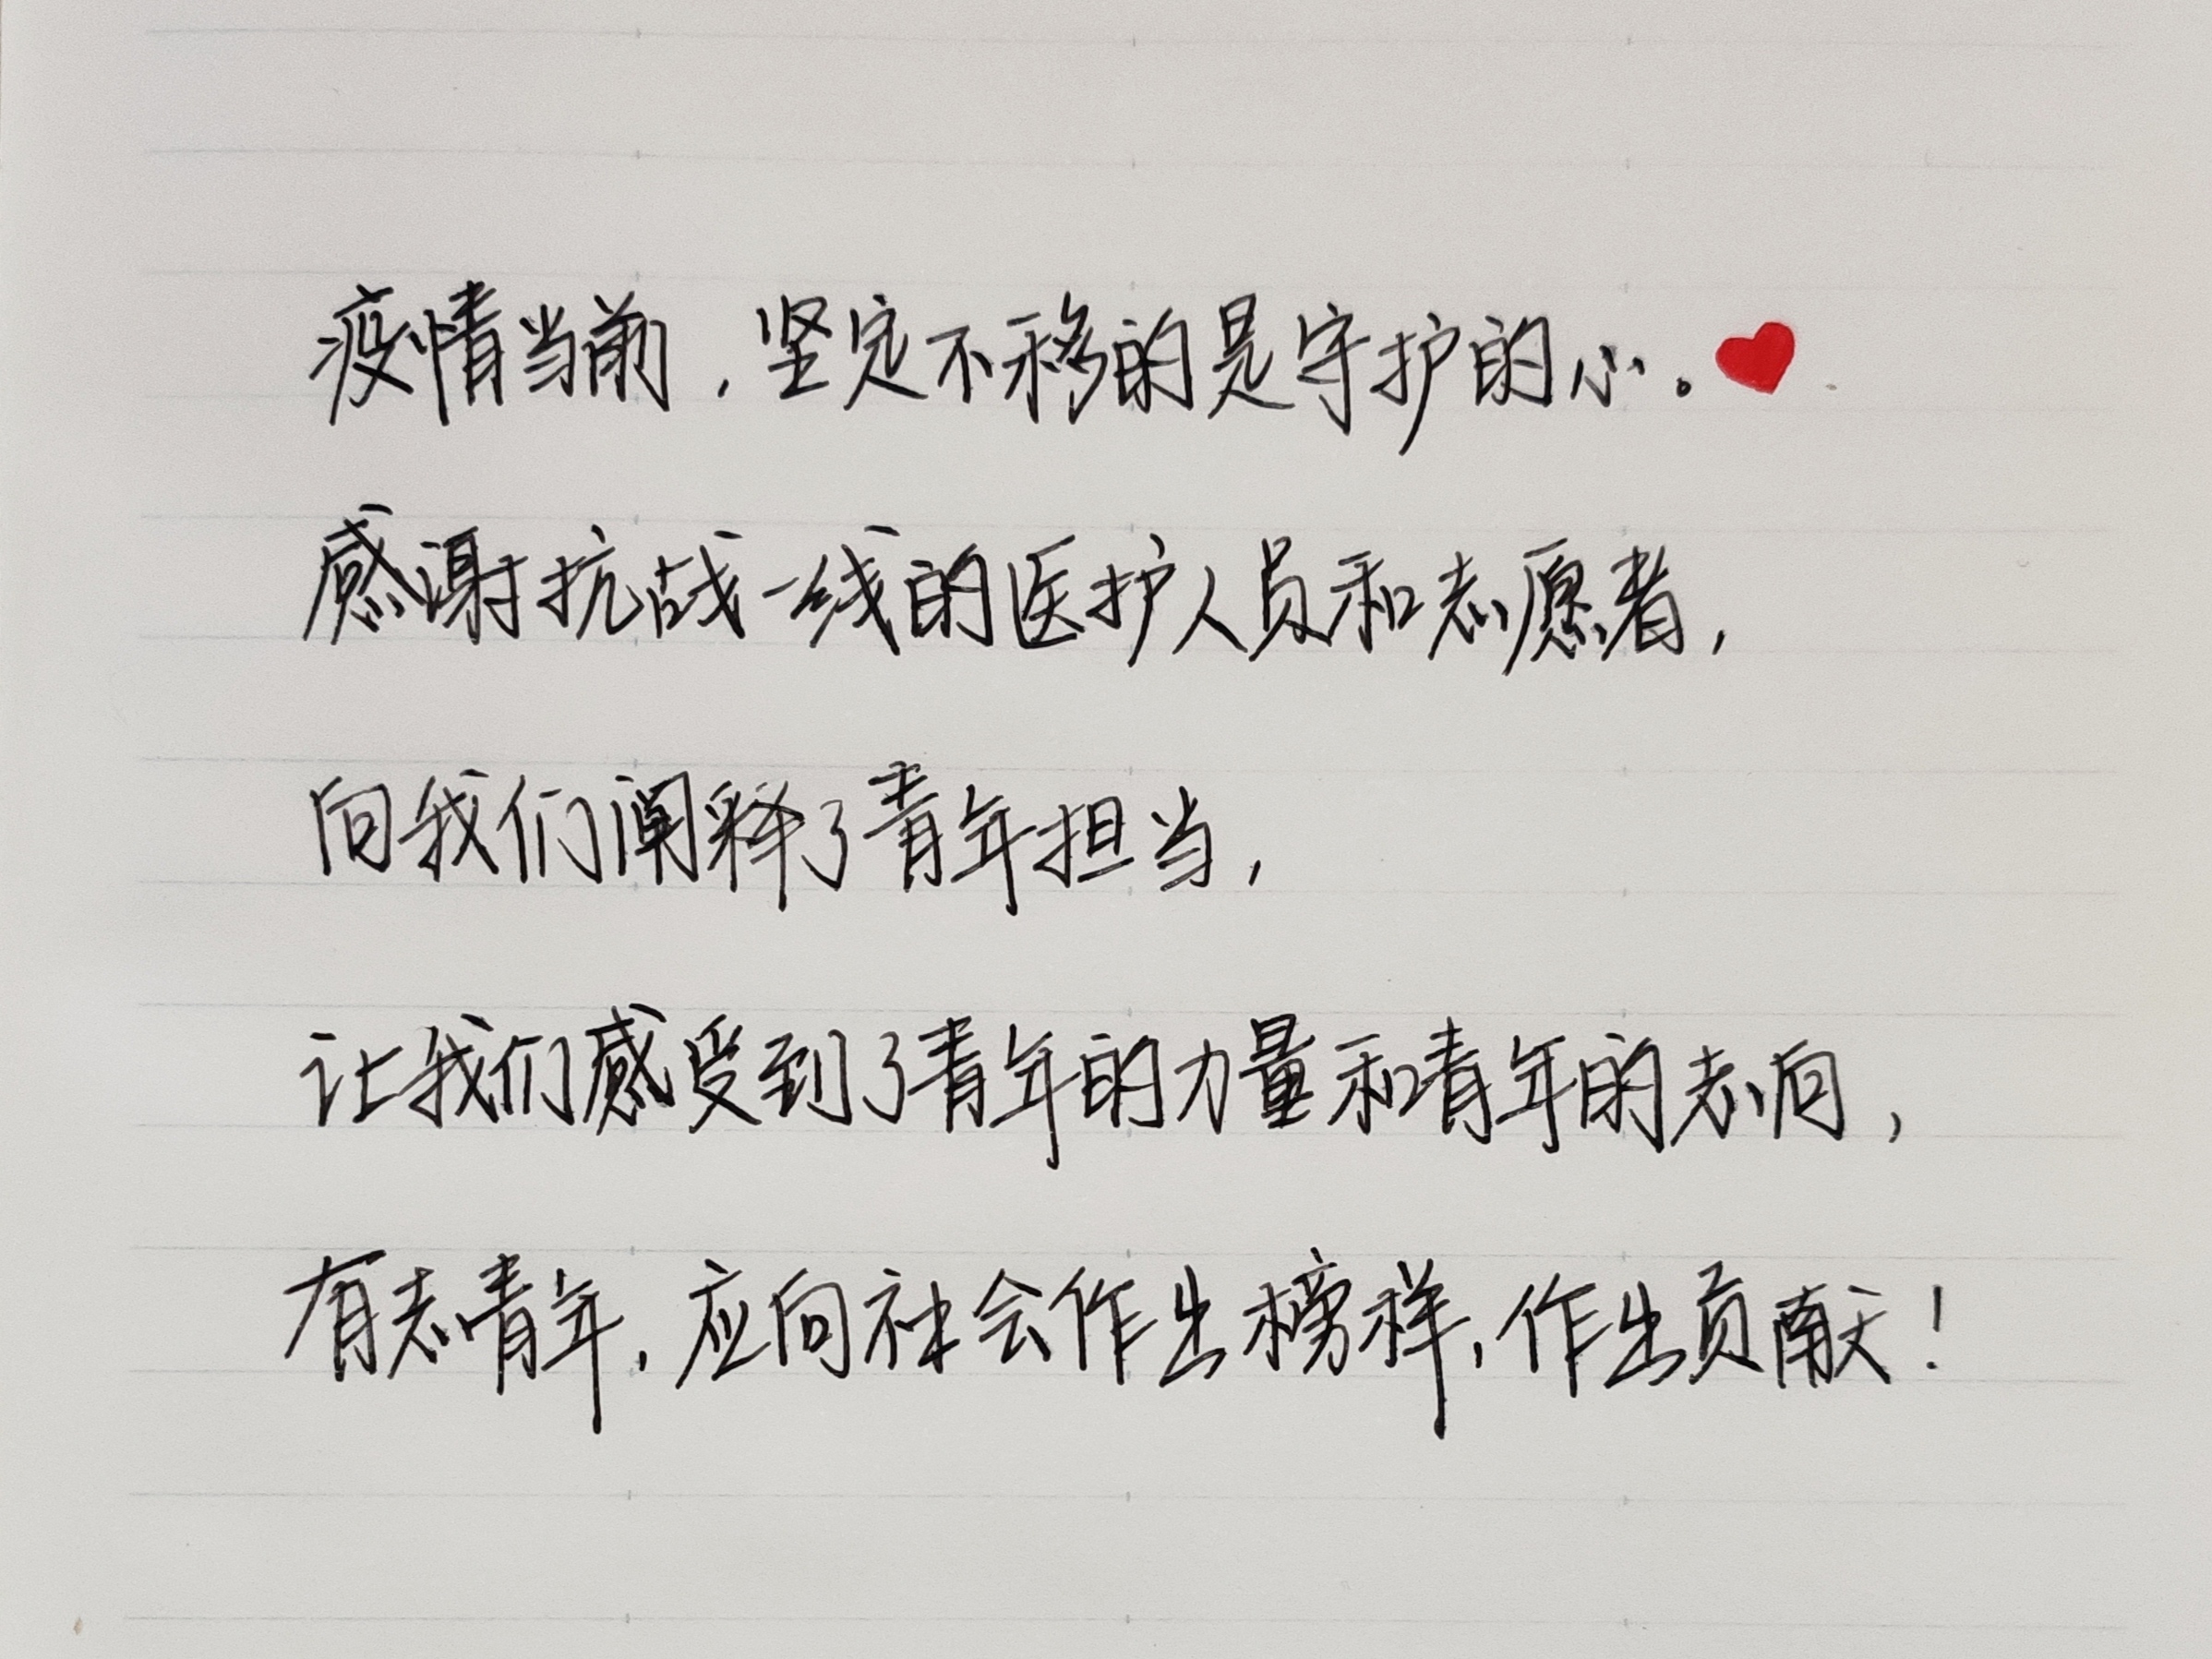 疫情当前，坚定不移的是守护的心。❤
感谢抗战一线的医护人员和志愿者，
向我们阐释了青年担当，
让我们感受到了青年的力量和青年的志向，
有志青年，应向社会作出榜样，作出贡献！